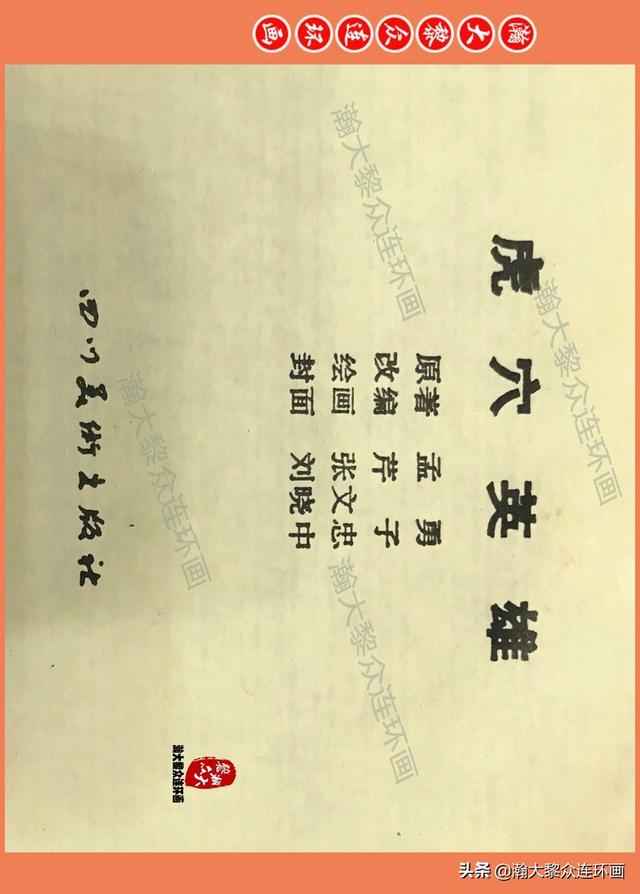 瀚大黎众连环画
虎穴英雄
原著 孟勇
改编 芹子
绘画 张文忠
封面 刘晓中
四川美術出版社
瀚大黎众连环画
瀚大黎众连环画
瀚大黎众连环画
瀚大黎众连环画
瀚大黎众连环画
头条 @瀚大黎众连环画